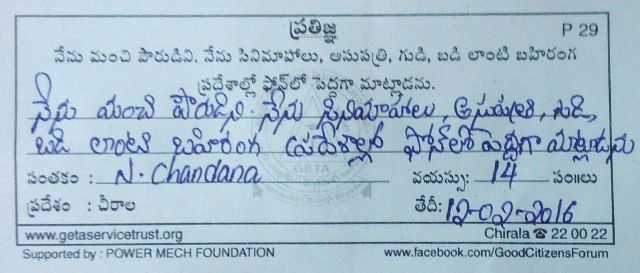 ప్రతిజ్ఞ P 29
నేను మంచి పౌరుడిని. నేను సినిమాహాలు, ఆసుపత్రి, గుడి, బడి లాంటి బహిరంగ
ప్రదేశాల్లో ఫోన్‌లో పెద్దగా మాట్లాడను.
నేను మంచి పౌరుడిని. నేను సినిమాహాలు, ఆసుపత్రి,
బడి లాంటి బహిరంగ ప్రదేశాల్లో ఫోన్‌లో పెద్దగా మాట్లాడను
సంతకం : N. Chandana వయస్సు: 14 సం॥లు
ప్రదేశం : చీరాల తేదీ: 12-02-2016
www.getaservicetrust.org Chirala ☎ 22 00 22
Supported by : POWER MECH FOUNDATION www.facebook.com/GoodCitizensForum
GETA